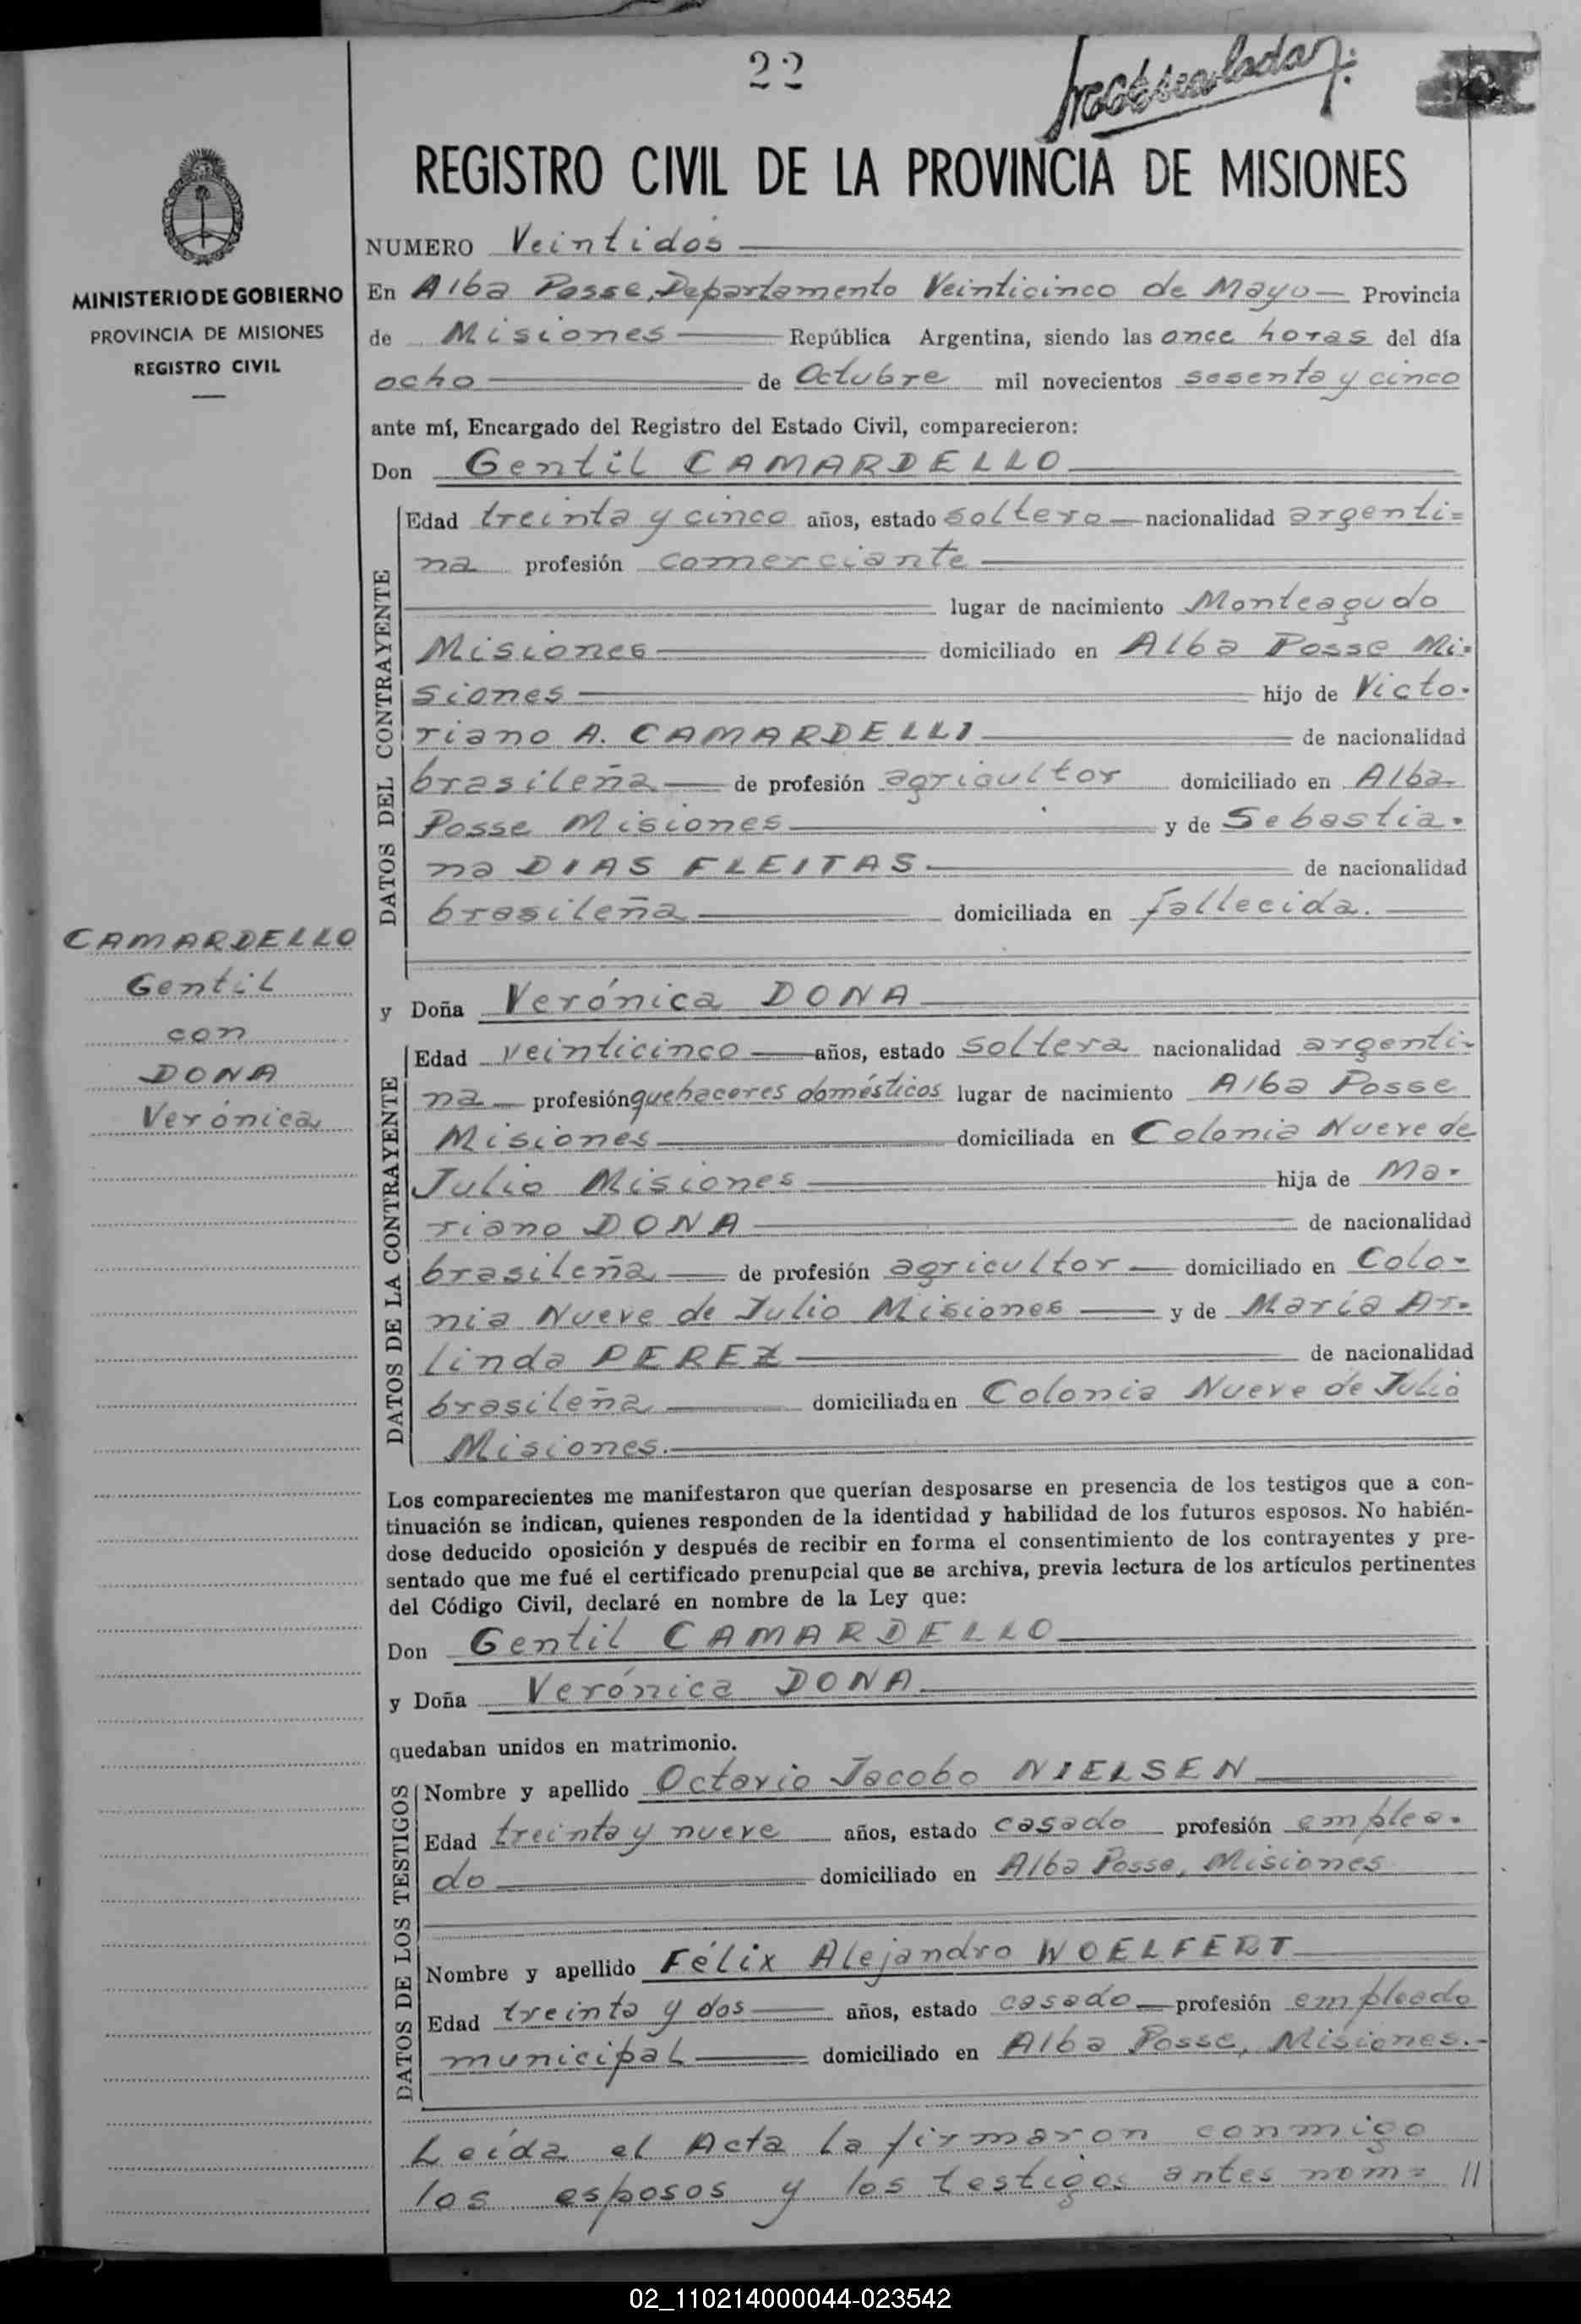 22
REGISTRO CIVIL DE LA PROVINCIA DE MISIONES
MINISTERIO DE GOBIERNO
PROVINCIA DE MISIONES
REGISTRO CIVIL
NUMERO Veintidós
En Alba Posse, Departamento Veinticinco de Mayo — Provincia
de Misiones — República Argentina, siendo las once horas del día
ocho — de Octubre mil novecientos sesenta y cinco
ante mí, Encargado del Registro del Estado Civil, comparecieron:
Don Gentil CAMARDELLO
DATOS DEL CONTRAYENTE
Edad treinta y cinco años, estado soltero — nacionalidad argenti=
na profesión comerciante
lugar de nacimiento Monteagudo
Misiones — domiciliado en Alba Posse Mi=
siones — hijo de Victo-
riano A. CAMARDELLI — de nacionalidad
brasileña — de profesión agricultor domiciliado en Alba
Posse Misiones — y de Sebastia-
na DIAS FLEITAS — de nacionalidad
brasileña — domiciliada en fallecida.
CAMARDELLO
Gentil
con
DONA
Verónica
y Doña Verónica DONA
DATOS DE LA CONTRAYENTE
Edad veinticinco — años, estado soltera nacionalidad argenti-
na — profesión quehaceres domésticos lugar de nacimiento Alba Posse
Misiones — domiciliada en Colonia Nueve de
Julio Misiones — hija de Ma-
riano DONA — de nacionalidad
brasileña — de profesión agricultor — domiciliado en Colo-
nia Nueve de Julio Misiones — y de María Ar-
linda PEREZ — de nacionalidad
brasileña — domiciliada en Colonia Nueve de Julio
Misiones.
Los comparecientes me manifestaron que querían desposarse en presencia de los testigos que a con-
tinuación se indican, quienes responden de la identidad y habilidad de los futuros esposos. No habién-
dose deducido oposición y después de recibir en forma el consentimiento de los contrayentes y pre-
sentado que me fué el certificado prenupcial que se archiva, previa lectura de los artículos pertinentes
del Código Civil, declaré en nombre de la Ley que:
Don Gentil CAMARDELLO
y Doña Verónica DONA
quedaban unidos en matrimonio.
DATOS DE LOS TESTIGOS
Nombre y apellido Octavio Jacobo NIELSEN
Edad treinta y nueve años, estado casado profesión emplea-
do — domiciliado en Alba Posse, Misiones
Nombre y apellido Félix Alejandro WOELFERT
Edad treinta y dos — años, estado casado — profesión empleado
municipal — domiciliado en Alba Posse, Misiones.-
Leída el Acta la firmaron conmigo
los esposos y los testigos antes nom= //
02_110214000044-023542